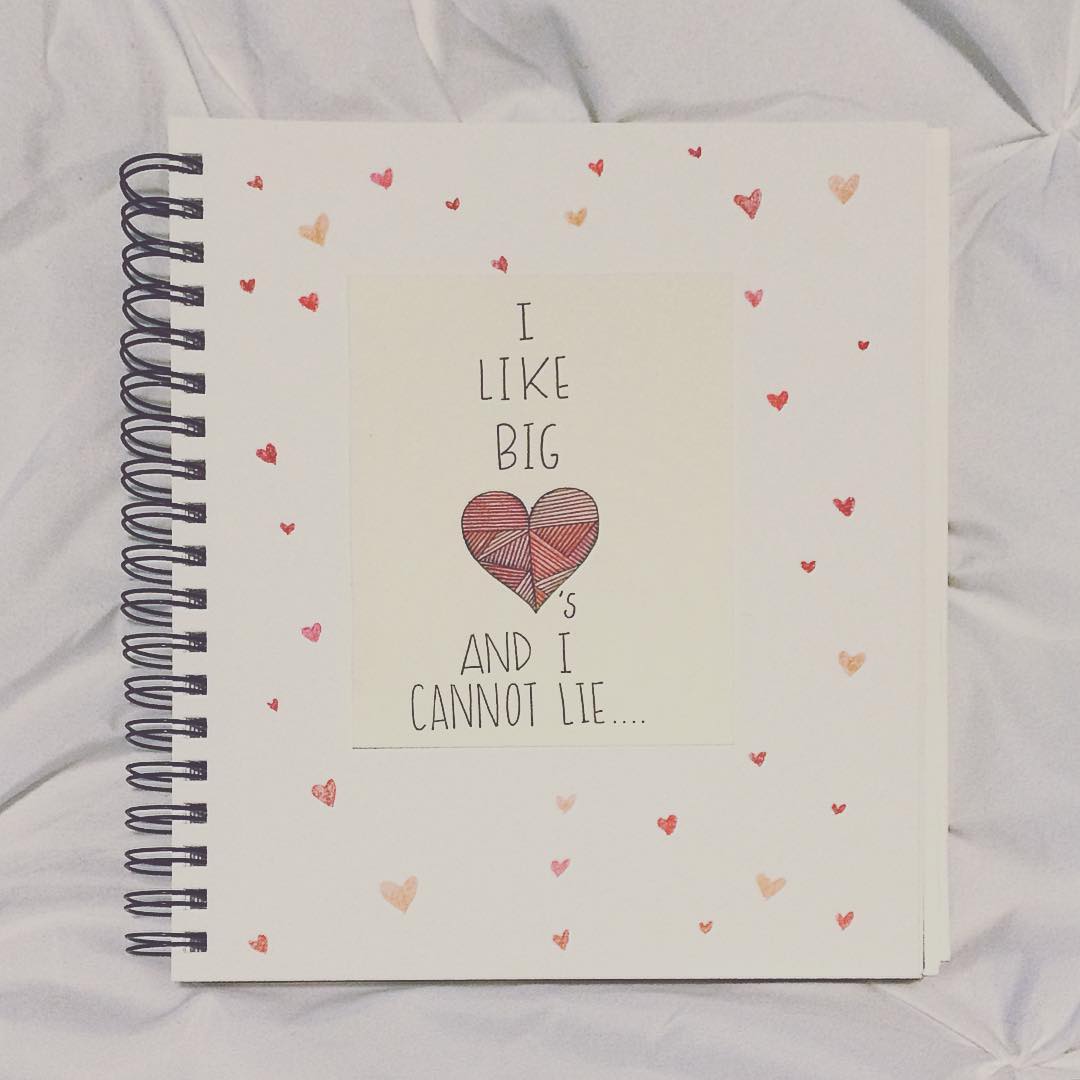 I
LIKE
BIG
's
AND I
CANNOT LIE....